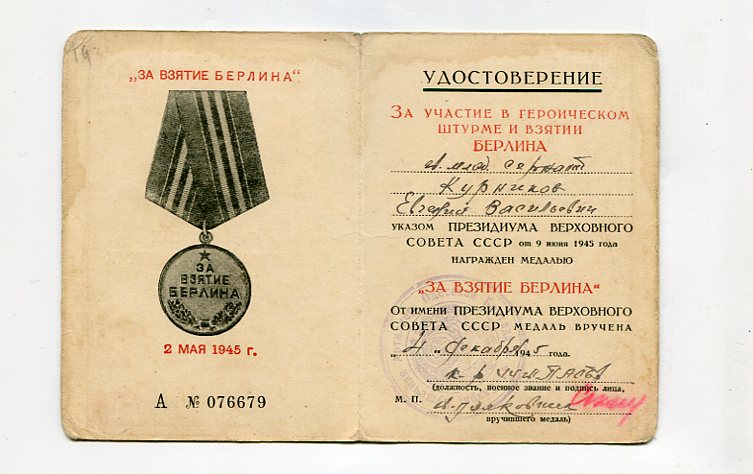 „ЗА ВЗЯТИЕ БЕРЛИНА“
ЗА
ВЗЯТИЕ
БЕРЛИНА
2 МАЯ 1945 г.
А № 076679
УДОСТОВЕРЕНИЕ
ЗА УЧАСТИЕ В ГЕРОИЧЕСКОМ
ШТУРМЕ И ВЗЯТИИ
БЕРЛИНА
мл. сержант
Курников
Василь­евич
УКАЗОМ ПРЕЗИДИУМА ВЕРХОВНОГО
СОВЕТА СССР от 9 июня 1945 года
НАГРАЖДЕН МЕДАЛЬЮ
„ЗА ВЗЯТИЕ БЕРЛИНА“
От имени ПРЕЗИДИУМА ВЕРХОВНОГО
СОВЕТА СССР МЕДАЛЬ ВРУЧЕНА
„4„ декабря 1945 года.
к-р
(должность, военное звание и подпись лица,
М. П.
вручившего медаль)